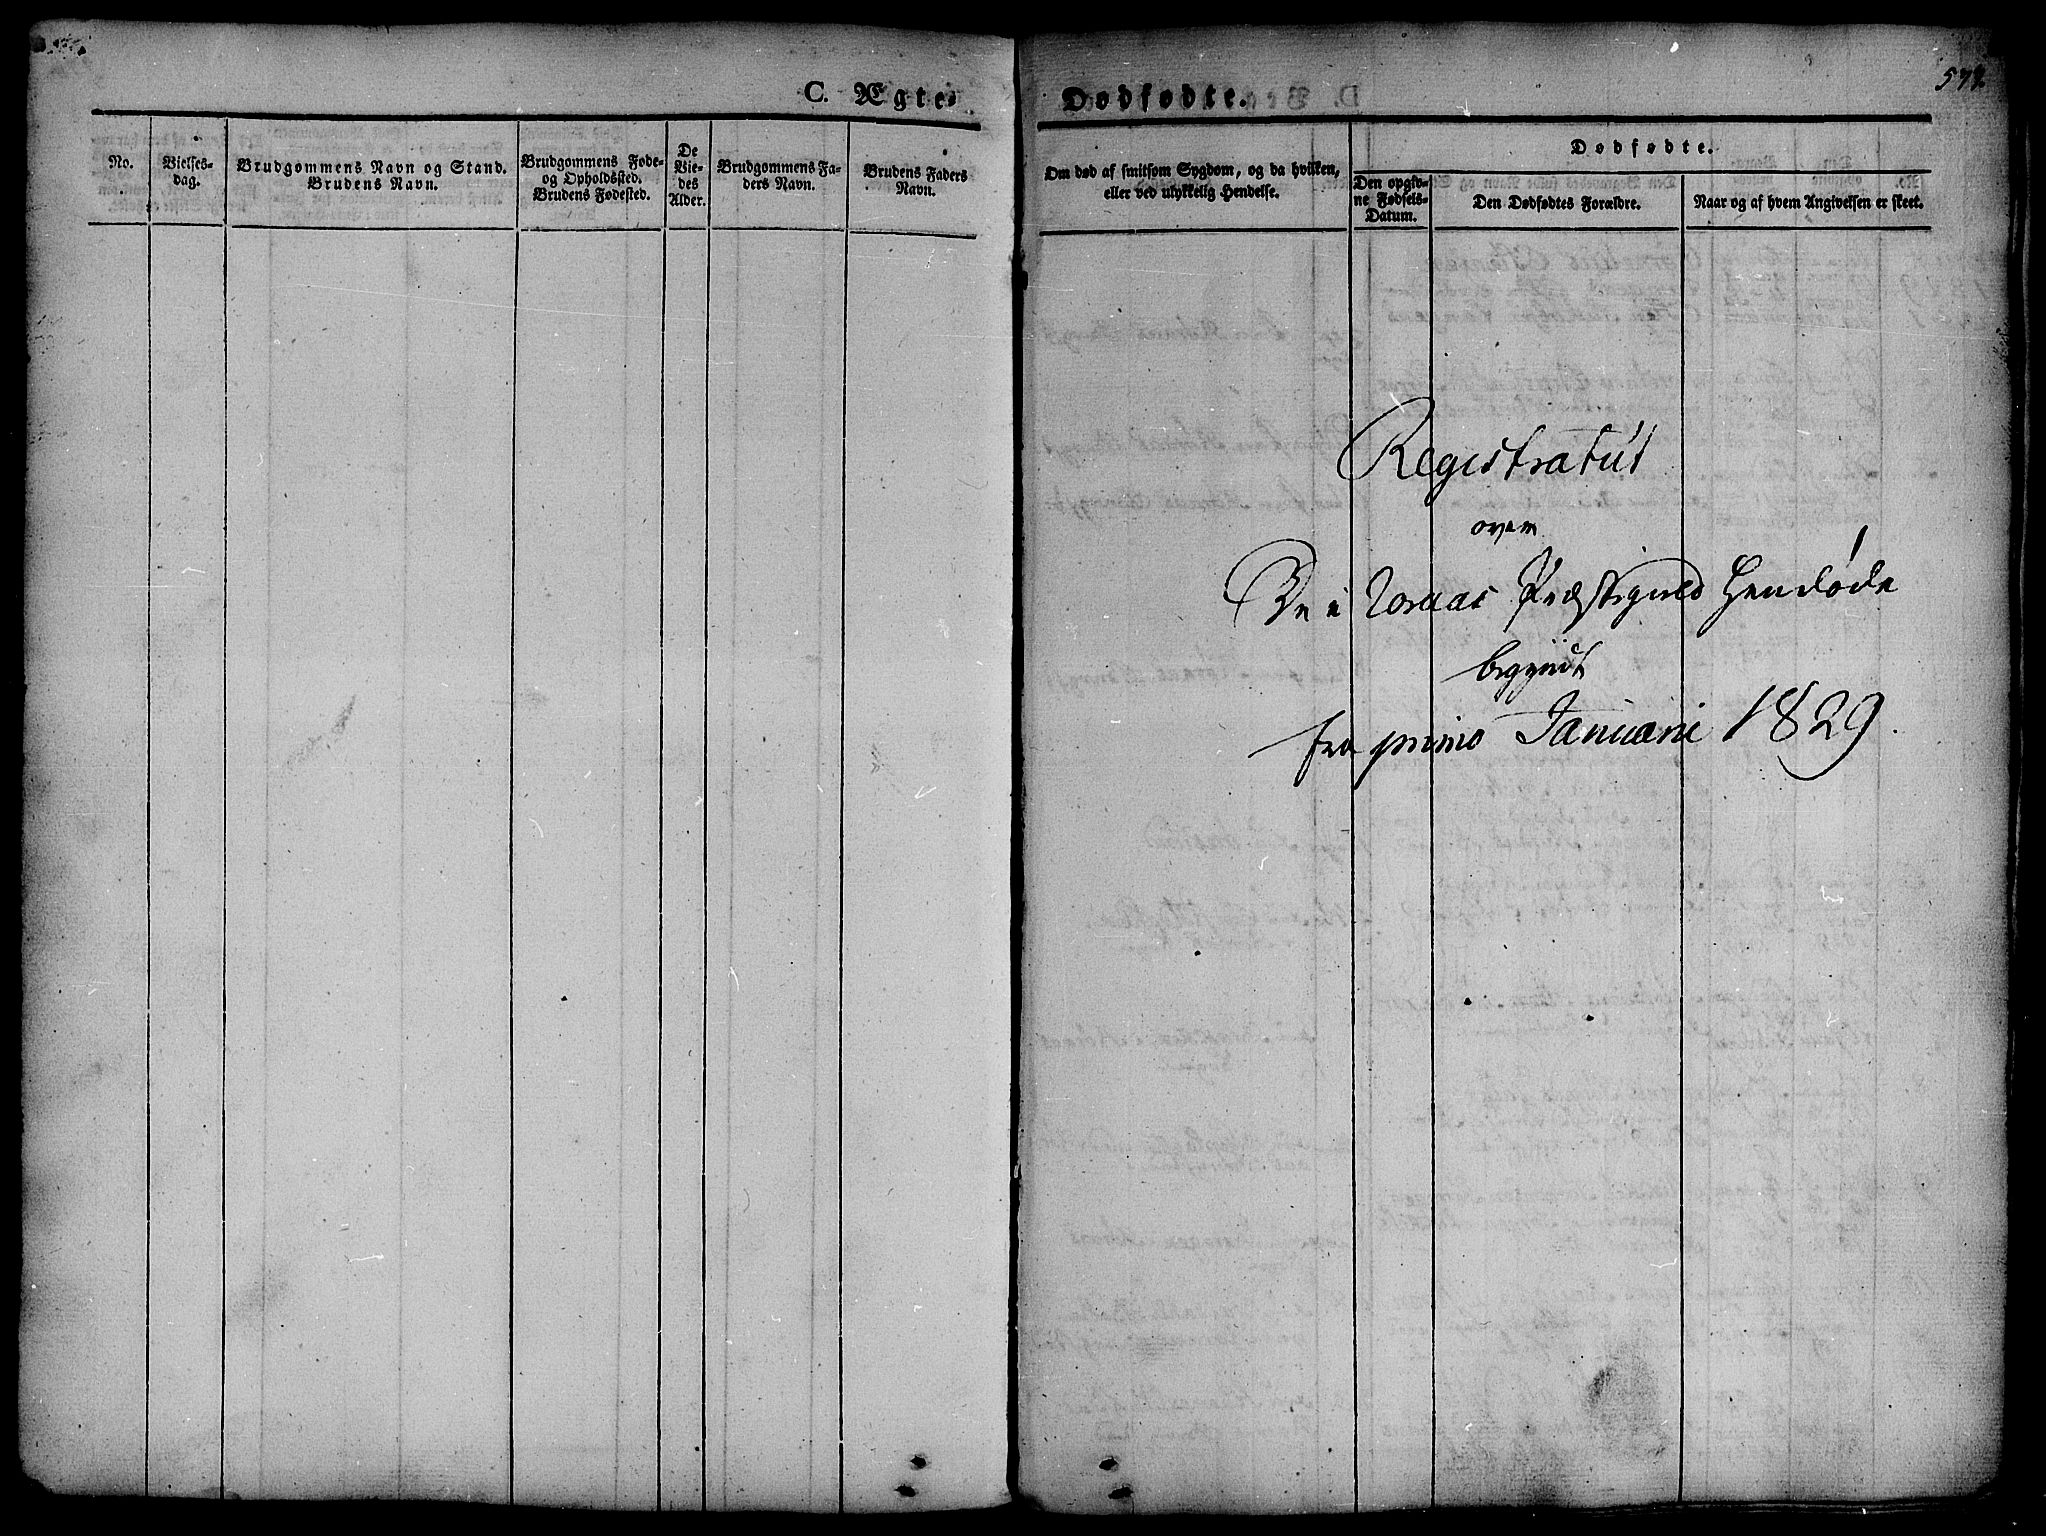 C. Ægte-
No.
Vielses-
dag.
Brudgommens Navn og Stand.
Brudens Navn.
Brudgommens Føde-
og Opholdssted.
Brudens Fødested.
De
Vie-
des
Alder.
Brudgommens Fa-
ders Navn.
Brudens Faders
Navn.
572
Dødfødte.
Om død af smitsom Sygdom, og da hvilken,
eller ved ulykkelig Hendelse.
Dødfødte.
Den opgiv-
ne Fødsels-
Datum.
Den Dødfødtes Forældre.
Naar og af hvem Angivelsen er skeet.
Registratur
over
De i Voraas Præstegield Hendøde
begyndt
fra primo Januarii 1829.